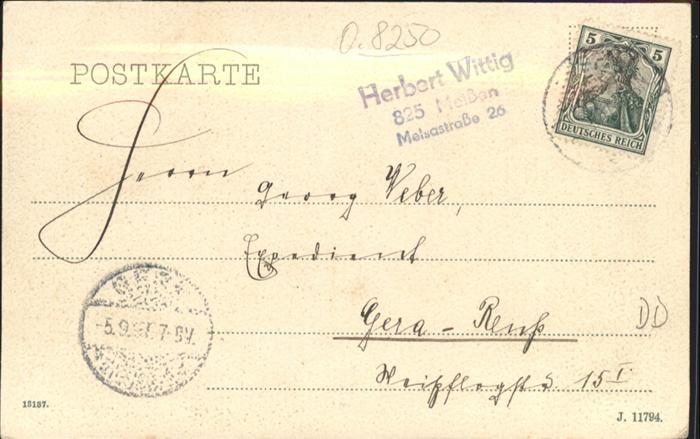 O.8250
POSTKARTE
Herbert Wittig
825 Meißen
Meisastraße 26
5 5
DEUTSCHES REICH
Herrn
Georg Weber,
Expedient
Gera - Reuß
15 I
DD
GERA
5.9. 7-8V.
13187.
J. 11794.